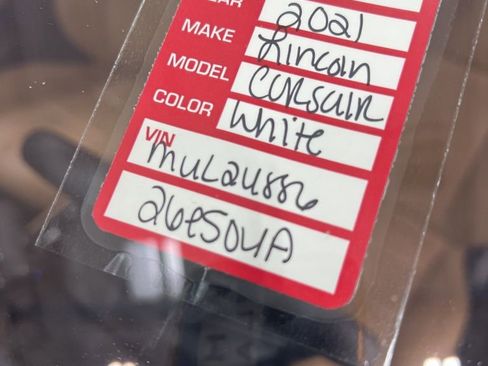 2021
MAKE Lincoln
MODEL Corsair
COLOR White
VIN MUL2USS6
26PS04A